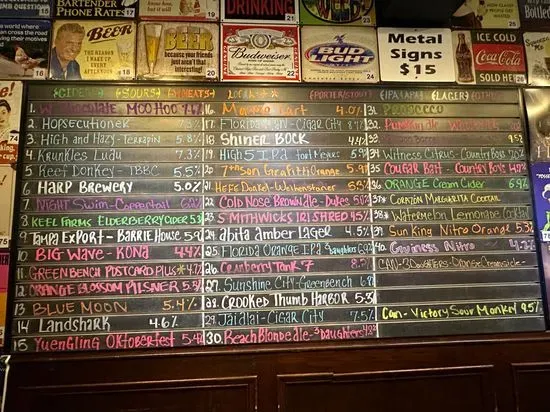 BARTENDER
PHONE RATES
DRINKING
22
21
18
BEER
THE REASON
I WAKE UP
EVERY
AFTERNOON
22
BEER
BECAUSE your friends
just aren't that
interesting!
Budweiser
24
BUD
LIGHT
24
Metal
Signs
$15
ICE COLD
Coca-Cola
SOLD HERE
CIDERS SOURS WHEATS LOCAL PORTER/STOUT IPA/APA LAGER OTHER
1. Chocolate MOO HOO
2. HOPSECUTIONER 5.3
3. High and Hazy - Terrapin 5.8%
4. Krunkles Ludu 7.3%
5. Reef Donkey - TBBC 5.5%
6. HARP BREWERY 5.0%
7. NIGHT Swim - Coppertail
8. KEEL FARMS ELDERBERRY CIDER 5.3
9. TAMPA EXPORT - BARRIEHOUSE 5.9
10. BIG WAVE - KONA 4.4%
11. GREENBENCH POSTCARD PILS 4.7%
12. ORANGE BLOSSOM PILSNER 5.5%
13. BLUE MOON 5.4%
14. Landshark 4.6%
15. YUENGLING OKTOBERFEST 5.4
16. Mango Cart 4.0%
17. Florida Man - Cigar City 8.7%
18. SHINER BOCK 4.4%
19. High 5 IPA Fort Myers 5.9%
20. 7venth Son Graffiti Orange 5.9
21. HEFE DUNKEL - Weihenstaner 5.3%
22. Cold Nose Brown Ale - Dukes 5.0%
23. SMITHWICKS IRISH RED 4.5%
24. abita amber LAGER 4.5%
25. Florida Orange IPA 3 Daughters
26. Cranberry Tank 7
27. Sunshine City - GreenBench 6.8
28. CROOKED Thumb HARBOR 5.3
29. Jai alai - Cigar City 7.5%
30. Beach Blonde ale - 3 daughters
31. PROSECCO
32. Pumpkin
33.
34. Witness Citrus - Country Boys 7.0%
35. COUGAR BAIT - Country Boys 4.9%
36. ORANGE Cream Cider 6.9%
37. Corazon Margarita Cocktail
38. Watermelon Lemonade
39. Sun King Nitro Orange 5.3%
40. Guinness Nitro 4.2%
CAN - 3 Daughters - Orange Creamsicle
Can - Victory Sour Monkey 9.5%